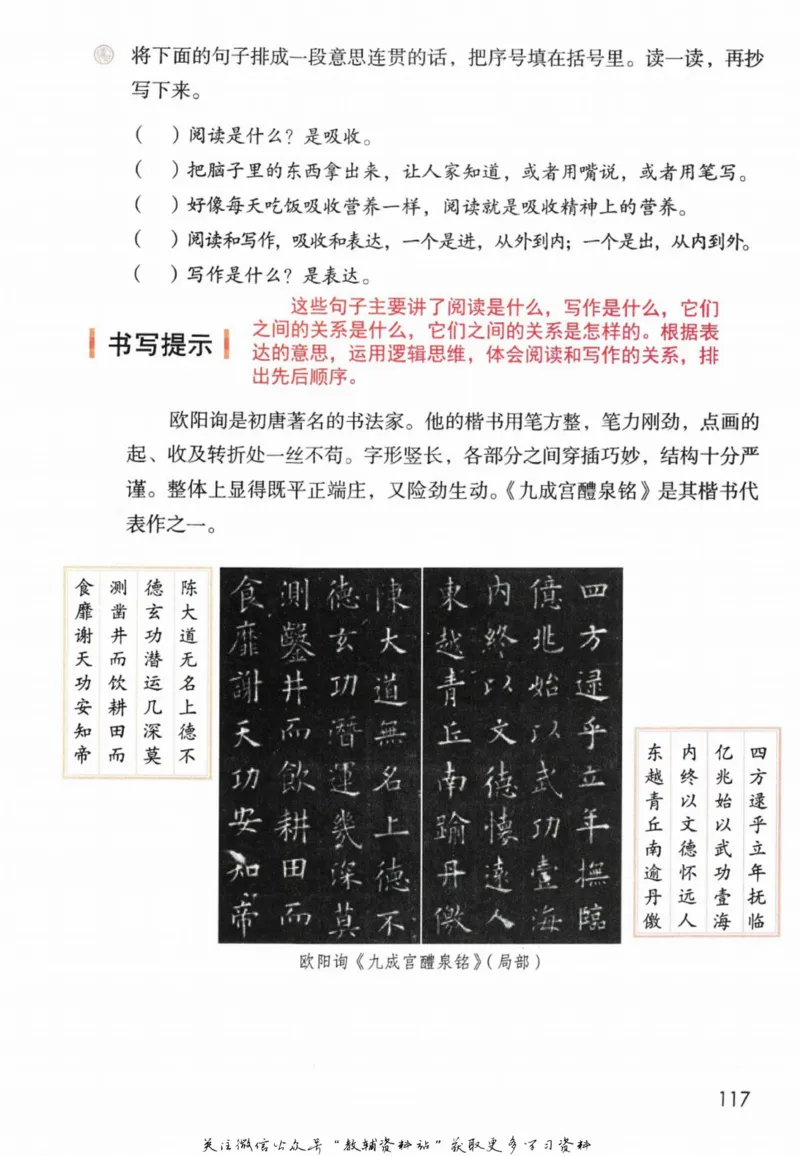 将下面的句子排成一段意思连贯的话，把序号填在括号里。读一读，再抄
写下来。
（　）阅读是什么？是吸收。
（　）把脑子里的东西拿出来，让人家知道，或者用嘴说，或者用笔写。
（　）好像每天吃饭吸收营养一样，阅读就是吸收精神上的营养。
（　）阅读和写作，吸收和表达，一个是进，从外到内；一个是出，从内到外。
（　）写作是什么？是表达。
这些句子主要讲了阅读是什么，写作是什么，它们
之间的关系是什么，它们之间的关系是怎样的。根据表
达的意思，运用逻辑思维，体会阅读和写作的关系，排
出先后顺序。
书写提示
欧阳询是初唐著名的书法家。他的楷书用笔方整，笔力刚劲，点画的
起、收及转折处一丝不苟。字形竖长，各部分之间穿插巧妙，结构十分严
谨。整体上显得既平正端庄，又险劲生动。《九成宫醴泉铭》是其楷书代
表作之一。
四方逯乎立年抚临
亿兆始以武功壹海
内终以文德怀远人
东越青丘南逾丹徼
陈大道无名上德不
德玄功潜运几深莫
测凿井而饮耕田而
食靡谢天功安知帝
四方逯乎立年撫臨
億兆始以武功壹海
内終以文德懷遠人
東越青丘南踰丹徼
陳大道無名上德不
徳玄功潛運幾深莫
測鑿井而飲耕田而
食靡謝天功安知帝
欧阳询《九成宫醴泉铭》（局部）
117
关注微信公众号“教辅资料站”获取更多学习资料